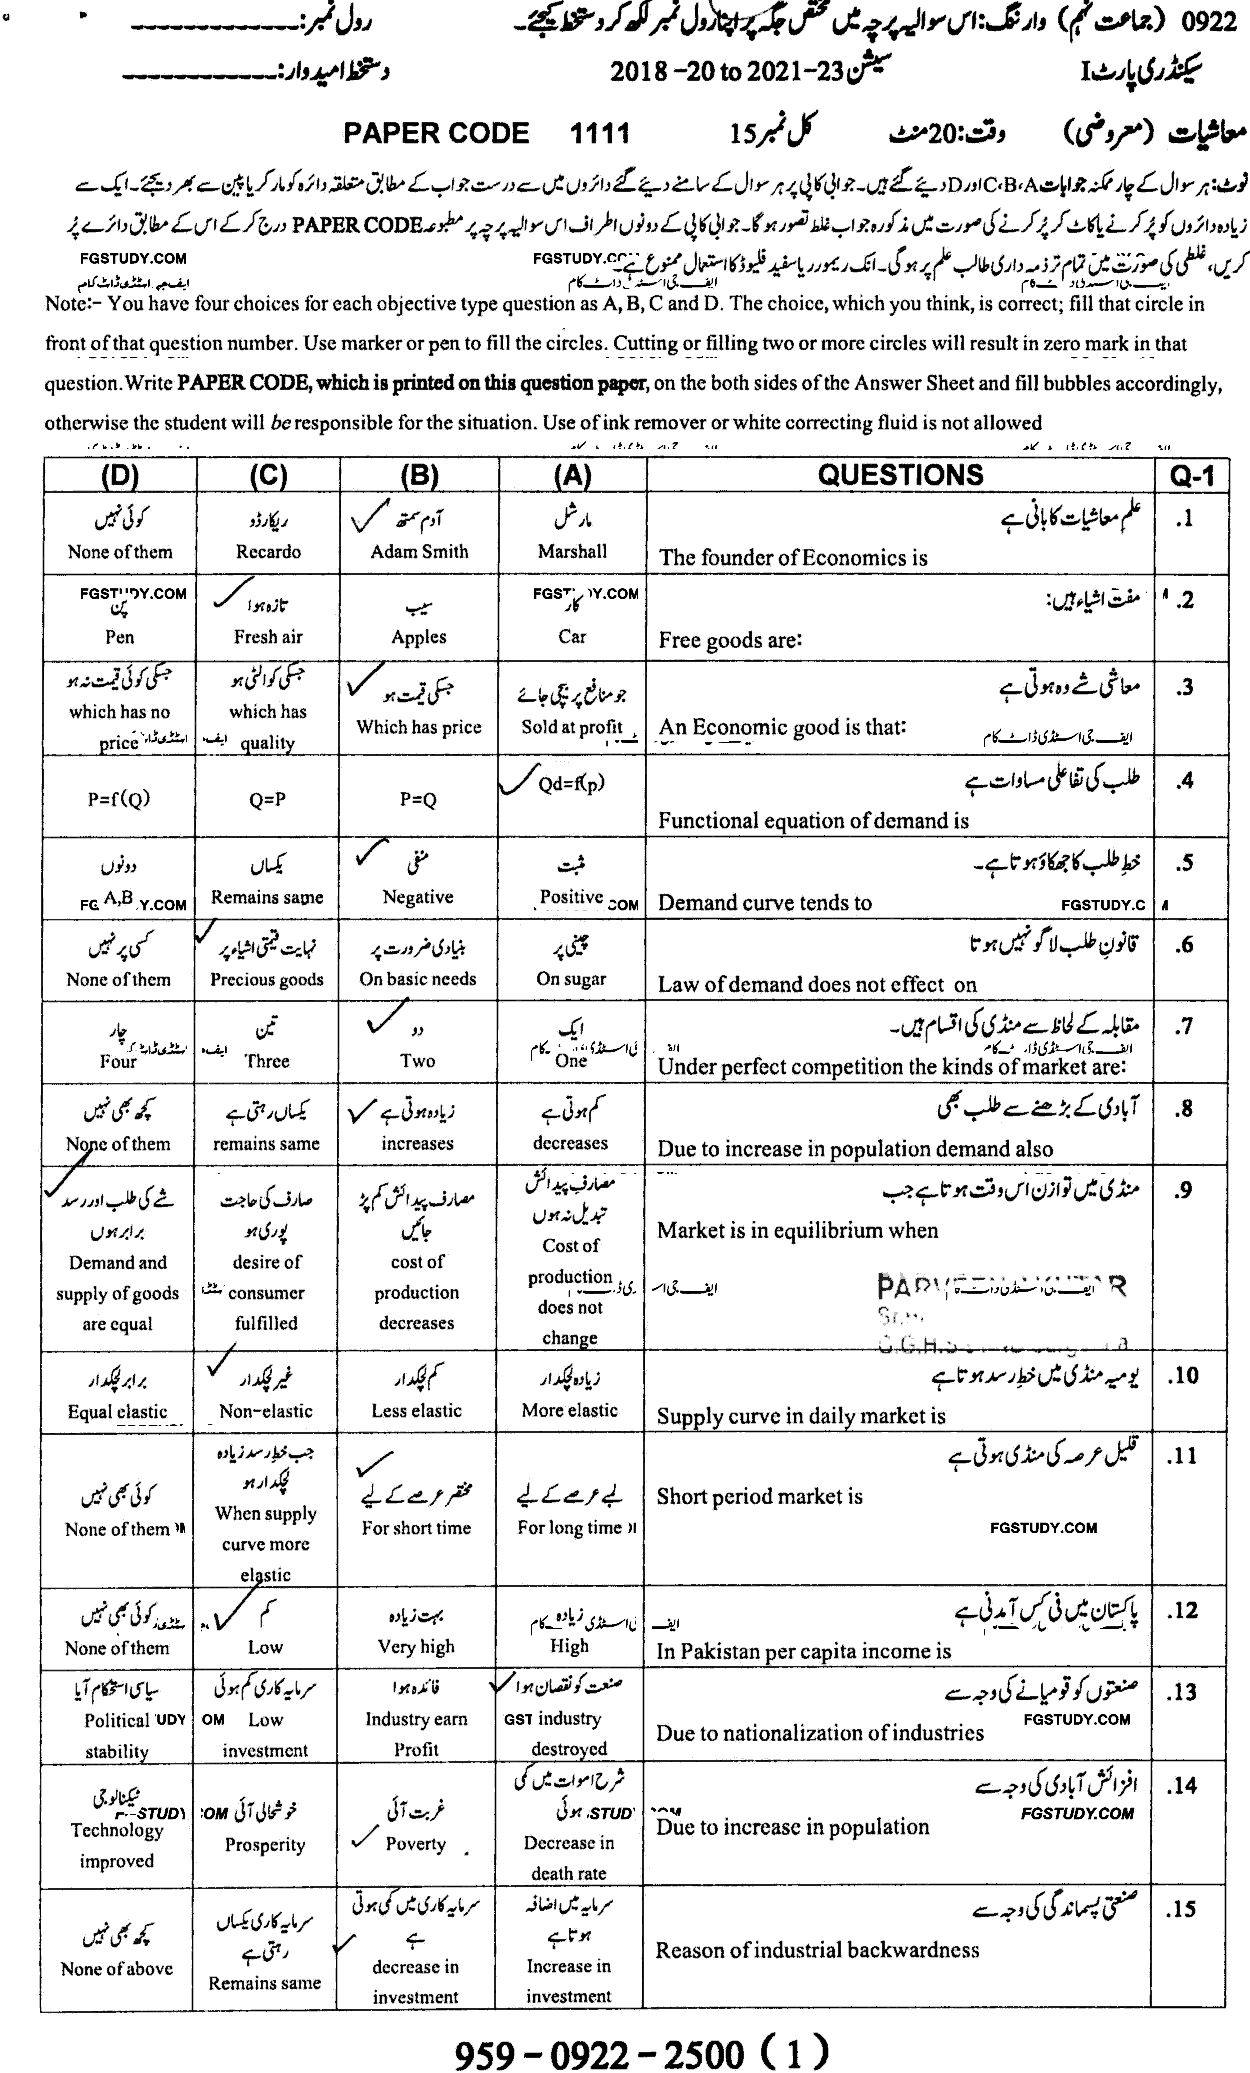 0922 (جماعت نہم) وارننگ: اس سوالیہ پرچہ میں مختص جگہ پر اپنا رول نمبر لکھ کر دستخط کیجئے۔ رول نمبر:
سیکنڈری پارٹ I سیشن 2018 –20 to 2021–23 دستخط امیدوار:
معاشیات (معروضی) وقت: 20 منٹ کل نمبر 15 PAPER CODE 1111
نوٹ: ہر سوال کے چار ممکنہ جوابات C،B،A اور D دیئے گئے ہیں۔ جوابی کاپی پر ہر سوال کے سامنے دیئے گئے دائروں میں سے درست جواب کے مطابق متعلقہ دائرہ کو مارکر یا پین سے بھر دیجئے۔ ایک سے
زیادہ دائروں کو پُر کرنے یا کاٹ کر پُر کرنے کی صورت میں مذکورہ جواب غلط تصور ہوگا۔ جوابی کاپی کے دونوں اطراف اس سوالیہ پرچہ پر مطبوعہ PAPER CODE درج کر کے اس کے مطابق دائرے پُر
کریں، غلطی کی صورت میں تمام تر ذمہ داری طالب علم پر ہوگی۔ انک ریمور یا سفید فلیوڈ کا استعمال ممنوع ہے۔
FGSTUDY.COM
Note:- You have four choices for each objective type question as A, B, C and D. The choice, which you think, is correct; fill that circle in
front of that question number. Use marker or pen to fill the circles. Cutting or filling two or more circles will result in zero mark in that
question. Write PAPER CODE, which is printed on this question paper, on the both sides of the Answer Sheet and fill bubbles accordingly,
otherwise the student will be responsible for the situation. Use of ink remover or white correcting fluid is not allowed
(D) (C) (B) (A) QUESTIONS Q-1
کوئی نہیں ریکارڈو آدم سمتھ مارشل علم معاشیات کا بانی ہے .1
None of them Recardo Adam Smith Marshall The founder of Economics is
FGSTUDY.COM
پن تازہ ہوا سیب کار مفت اشیاء ہیں: .2
Pen Fresh air Apples Car Free goods are:
جسکی کوئی قیمت نہ ہو جسکی کوالٹی ہو جسکی قیمت ہو جو منافع پر بیچی جائے معاشی شے وہ ہوتی ہے .3
which has no price which has quality Which has price Sold at profit An Economic good is that:
ایف جی اسٹڈی ڈاٹ کام
طلب کی تفاعلی مساوات ہے .4
P=f(Q) Q=P P=Q Qd=f(p) Functional equation of demand is
دونوں یکساں منفی مثبت خط طلب کا جھکاؤ ہوتا ہے۔ .5
A,B Remains same Negative Positive Demand curve tends to
کسی پر نہیں نہایت قیمتی اشیاء پر بنیادی ضرورت پر چینی پر قانون طلب لاگو نہیں ہوتا .6
None of them Precious goods On basic needs On sugar Law of demand does not effect on
چار تین دو ایک مقابلہ کے لحاظ سے منڈی کی اقسام ہیں۔ .7
Four Three Two One Under perfect competition the kinds of market are:
کچھ بھی نہیں یکساں رہتی ہے زیادہ ہوتی ہے کم ہوتی ہے آبادی کے بڑھنے سے طلب بھی .8
None of them remains same increases decreases Due to increase in population demand also
شے کی طلب اور رسد برابر ہوں صارف کی حاجت پوری ہو مصارف پیدائش کم پڑ جائیں مصارف پیدائش تبدیل نہ ہوں منڈی میں توازن اس وقت ہوتا ہے جب .9
Demand and supply of goods are equal desire of consumer fulfilled cost of production decreases Cost of production does not change Market is in equilibrium when
برابر لچکدار غیر لچکدار کم لچکدار زیادہ لچکدار یومیہ منڈی میں خط رسد ہوتا ہے .10
Equal elastic Non-elastic Less elastic More elastic Supply curve in daily market is
کوئی بھی نہیں جب خط رسد زیادہ لچکدار ہو مختصر عرصے کے لیے لمبے عرصے کے لیے قلیل عرصہ کی منڈی ہوتی ہے .11
None of them When supply curve more elastic For short time For long time Short period market is
FGSTUDY.COM
کوئی بھی نہیں کم بہت زیادہ زیادہ پاکستان میں فی کس آمدنی ہے .12
None of them Low Very high High In Pakistan per capita income is
سیاسی استحکام آیا سرمایہ کاری کم ہوئی فائدہ ہوا صنعت کو نقصان ہوا صنعتوں کو قومیانے کی وجہ سے .13
Political stability Low investment Industry earn Profit industry destroyed Due to nationalization of industries
FGSTUDY.COM
ٹیکنالوجی خوشحالی آئی غربت آئی شرح اموات میں کمی ہوئی افزائش آبادی کی وجہ سے .14
Technology improved Prosperity Poverty Decrease in death rate Due to increase in population
FGSTUDY.COM
کچھ بھی نہیں سرمایہ کاری یکساں رہتی ہے سرمایہ کاری میں کمی ہوتی ہے سرمایہ میں اضافہ ہوتا ہے صنعتی پسماندگی کی وجہ سے .15
None of above Remains same decrease in investment Increase in investment Reason of industrial backwardness
959 – 0922 – 2500 ( 1 )